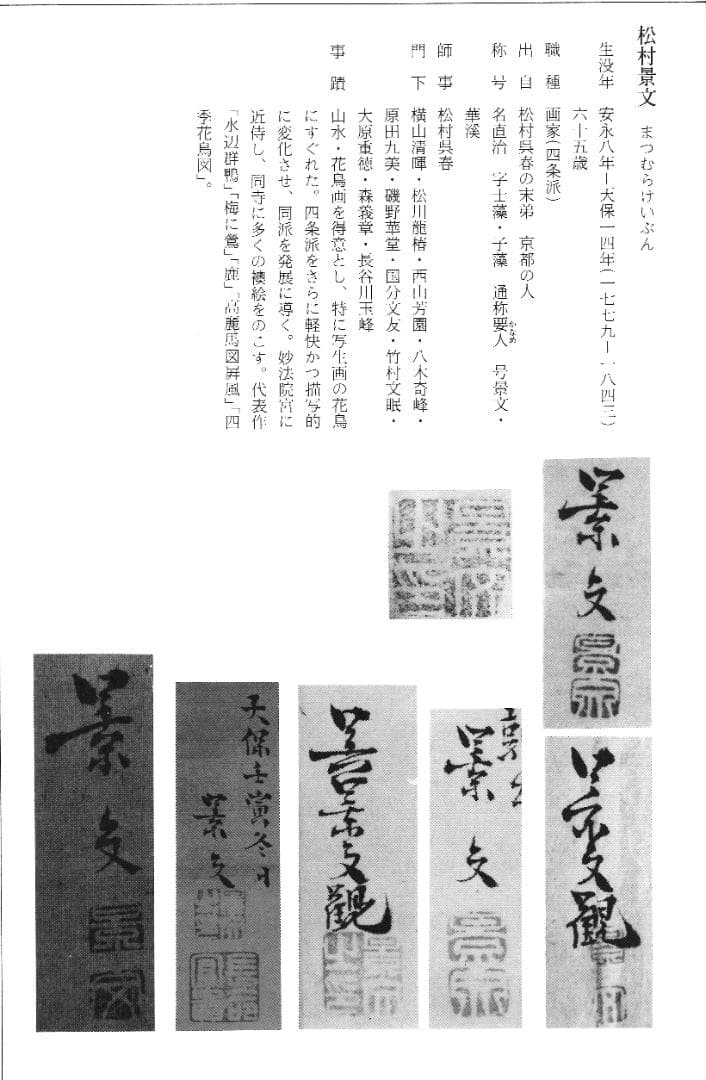 松村景文　まつむらけいぶん
生没年　安永八年―天保一四年(一七七九―一八四三)
六十五歳
職　種　画家(四条派)
出　自　松村呉春の末弟　京都の人
称　号　名直治　字士藻・子藻　通称要人　号景文・
かなめ
華溪
師　事　松村呉春
門　下　横山清暉・松川龍椿・西山芳園・八木奇峰・
原田九美・磯野華堂・国分文友・竹村文眠・
大原重徳・森義章・長谷川玉峰
事　蹟　山水・花鳥画を得意とし、特に写生画の花鳥
にすぐれた。四条派をさらに軽快かつ描写的
に変化させ、同派を発展に導く。妙法院宮に
近侍し、同寺に多くの襖絵をのこす。代表作
「水辺群鴨」「梅に鶯」「鹿」「高麗馬図屏風」「四
季花鳥図」。
景文
景文觀
景文
景文觀
天保壬寅冬日
景文
景文